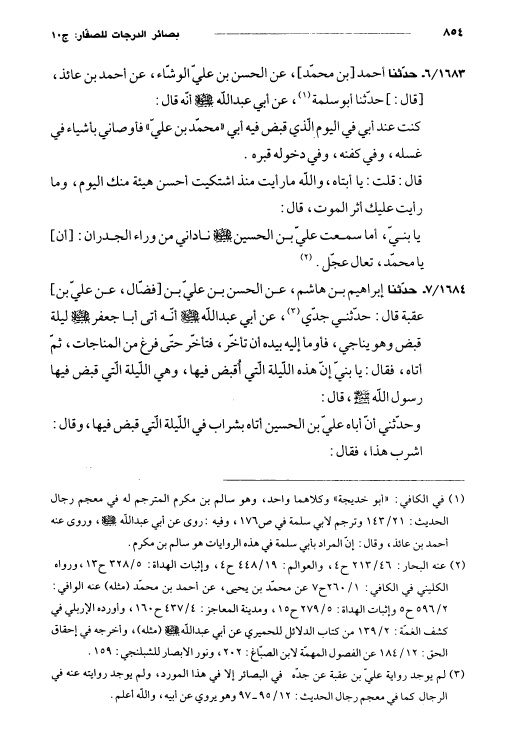 ٨٥٤ بصائر الدرجات للصفار: ج١٠
٦/١٦٨٣ـ حدّثنا أحمد [بن محمّد]، عن الحسن بن عليّ الوشّاء، عن أحمد بن عائذ،
[قال:] حدّثنا أبو سلمة (١)، عن أبي عبدالله ﷺ أنّه قال:
كنت عند أبي في اليوم الّذي قبض فيه أبي «محمّد بن عليّ» فأوصاني بأشياء في
غسله، وفي كفنه، وفي دخوله قبره.
قال: قلت: يا أبتاه، والله ما رأيت منذ اشتكيت أحسن هيئة منك اليوم، وما
رأيت عليك أثر الموت، قال:
يا بنيّ، أما سمعت عليّ بن الحسين ﷺ ناداني من وراء الجدران: [أن]
يا محمّد، تعال عجّل. (٢)
٧/١٦٨٤ـ حدّثنا إبراهيم بن هاشم، عن الحسن بن عليّ بن [فضّال، عن عليّ بن]
عقبة قال: حدّثني جدّي (٣)، عن أبي عبدالله ﷺ أنّه أتى أبا جعفر ﷺ ليلة
قبض وهو يناجي، فأوما إليه بيده أن تأخّر، فتأخّر حتّى فرغ من المناجات، ثمّ
أتاه، فقال: يا بنيّ إنّ هذه اللّيلة الّتي أُقبض فيها، وهي اللّيلة الّتي قبض فيها
رسول الله ﷺ، قال:
وحدّثني أنّ أباه عليّ بن الحسين أتاه بشراب في اللّيلة الّتي قبض فيها، وقال:
اشرب هذا، فقال:
(١) في الكافي: «أبو خديجة» وكلاهما واحد، وهو سالم بن مكرم المترجم له في معجم رجال
الحديث: ١٤٣/٢١ وترجم لابي سلمة في ص١٧٦، وفيه: روى عن أبي عبدالله ﷺ، وروى عنه
أحمد بن عائذ، وقال: إنّ المراد بأبي سلمة في هذه الروايات هو سالم بن مكرم.
(٢) عنه البحار: ٢١٣/٤٦ ح٤، والعوالم: ٤٤٨/١٩ ح٤، وإثبات الهداة: ٣٢٨/٥ ح١٣، ورواه
الكليني في الكافي: ٢٦٠/١ح٧ عن محمد بن يحيى، عن أحمد بن محمد (مثله) عنه الوافي:
٥٩٦/٢ ح٥ وإثبات الهداة: ٢٧٩/٥ ح١٥، ومدينة المعاجز: ٤٣٧/٤ ح١٦٠، وأورده الإربلي في
كشف الغمّة: ١٣٩/٢ من كتاب الدلائل للحميري عن أبي عبدالله ﷺ (مثله)، وأخرجه في إحقاق
الحق: ١٨٤/١٢ عن الفصول المهمّة لابن الصبّاغ: ٢٠٢، ونور الابصار للشبلنجي: ١٥٩.
(٣) لم يوجد رواية عليّ بن عقبة عن جدّه في البصائر إلا في هذا المورد، ولم يوجد روايته عنه في
الرجال كما في معجم رجال الحديث: ٩٥/١٢ـ٩٧ وهو يروي عن أبيه، والله أعلم.